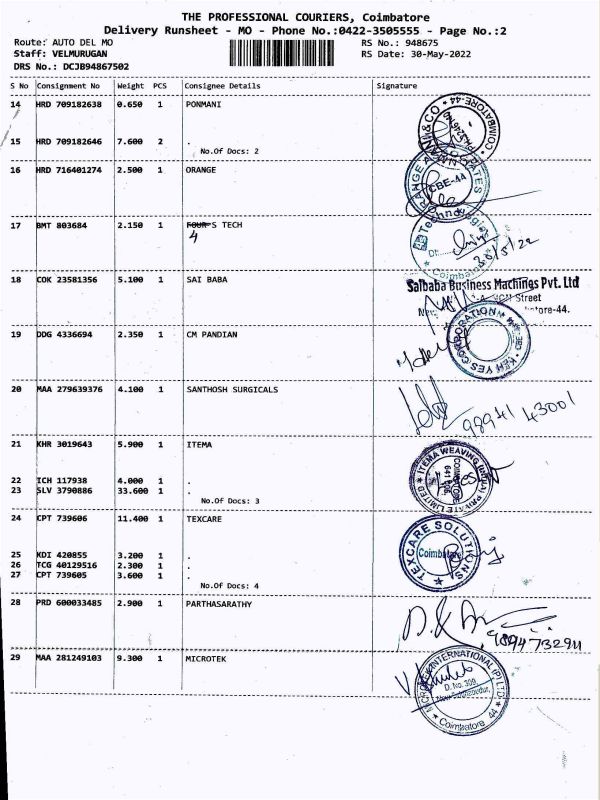 THE PROFESSIONAL COURIERS, Coimbatore
Delivery Runsheet - MO - Phone No.:0422-3505555 - Page No.:2
Route: AUTO DEL MO RS No.: 948675
Staff: VELMURUGAN RS Date: 30-May-2022
DRS No.: DCJB94867502
S No Consignment No Weight PCS Consignee Details Signature
14 HRD 709182638 0.650 1 PONMANI
15 HRD 709182646 7.600 2 .
No.Of Docs: 2
16 HRD 716401274 2.500 1 ORANGE
CBE-44
17 BMT 803684 2.150 1 FOUR S TECH
4
Technologies
30/5/22
Coimbatore
18 COK 23581356 5.100 1 SAI BABA
Saibaba Business Machings Pvt. Ltd
Street
tore-44.
19 DDG 4336694 2.350 1 CM PANDIAN
KEH YES CORPORATION CBE
20 MAA 279639376 4.100 1 SANTHOSH SURGICALS
98941 43001
21 KHR 3019643 5.900 1 ITEMA
ITEMA WEAVING (INDIA) PRIVATE LIMITED
COIMBATORE
22 ICH 117938 4.000 1 .
23 SLV 3790886 33.600 1 .
No.Of Docs: 3
24 CPT 739606 11.400 1 TEXCARE
TEXCARE SOLUTIONS
Coimbatore
25 KDI 420855 3.200 1 .
26 TCG 40129516 2.300 1 .
27 CPT 739605 3.600 1 .
No.Of Docs: 4
28 PRD 600033485 2.900 1 PARTHASARATHY
9894732911
29 MAA 281249103 9.300 1 MICROTEK
MICROTEK INTERNATIONAL (P) LTD
D. No. 309,
Coimbatore 44